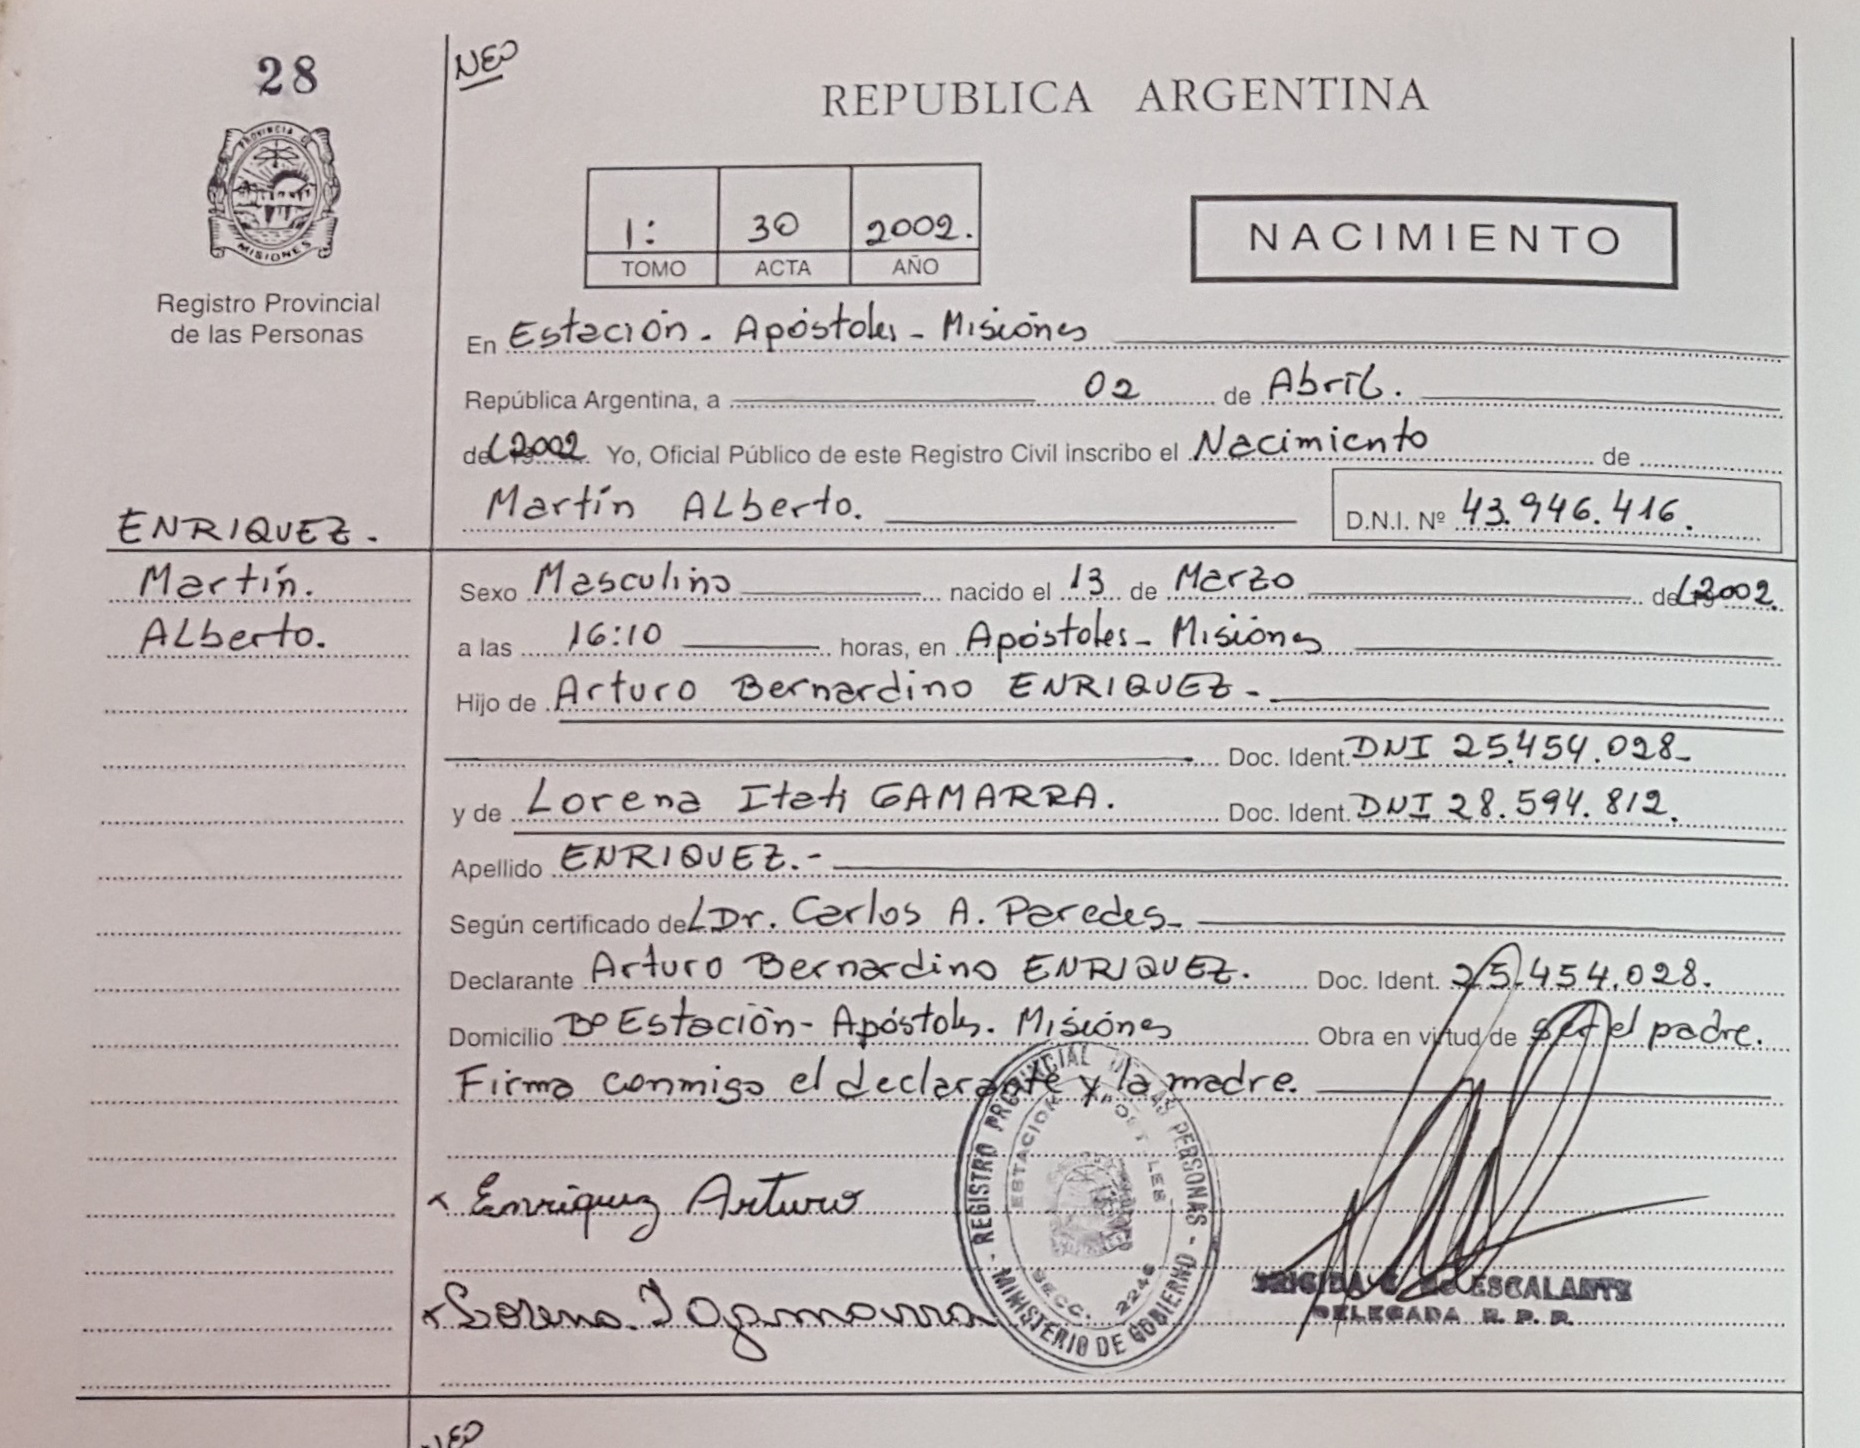 28
NEO
REPUBLICA ARGENTINA
PROVINCIA D
MISIONES
Registro Provincial
de las Personas
1: 30 2002.
TOMO ACTA AÑO
NACIMIENTO
En Estación - Apóstoles - Misiones
República Argentina, a 02 de Abril.
del 2002 Yo, Oficial Público de este Registro Civil inscribo el Nacimiento de
Martín Alberto. D.N.I. Nº 43.946.416.
ENRIQUEZ.
Martín.
Alberto.
Sexo Masculino nacido el 13 de Marzo del 2002.
a las 16:10 horas, en Apóstoles - Misiones
Hijo de Arturo Bernardino ENRIQUEZ -
Doc. Ident. DNI 25.454.028-
y de Lorena Itati GAMARRA. Doc. Ident. DNI 28.594.812.
Apellido ENRIQUEZ.-
Según certificado del Dr. Carlos A. Paredes-
Declarante Arturo Bernardino ENRIQUEZ. Doc. Ident. 25.454.028.
Domicilio Bº Estación - Apóstoles. Misiones Obra en virtud de ser el padre.
Firma conmigo el declarante y la madre.
x Enriquez Arturo
x Lorena I gamarra
- REGISTRO PROVINCIAL DE LAS PERSONAS - MINISTERIO DE GOBIERNO
ESTACION APOSTOLES
SECC. 2246
BRIGIDA DE ESCALANTE
DELEGADA R. P. P.
NEO